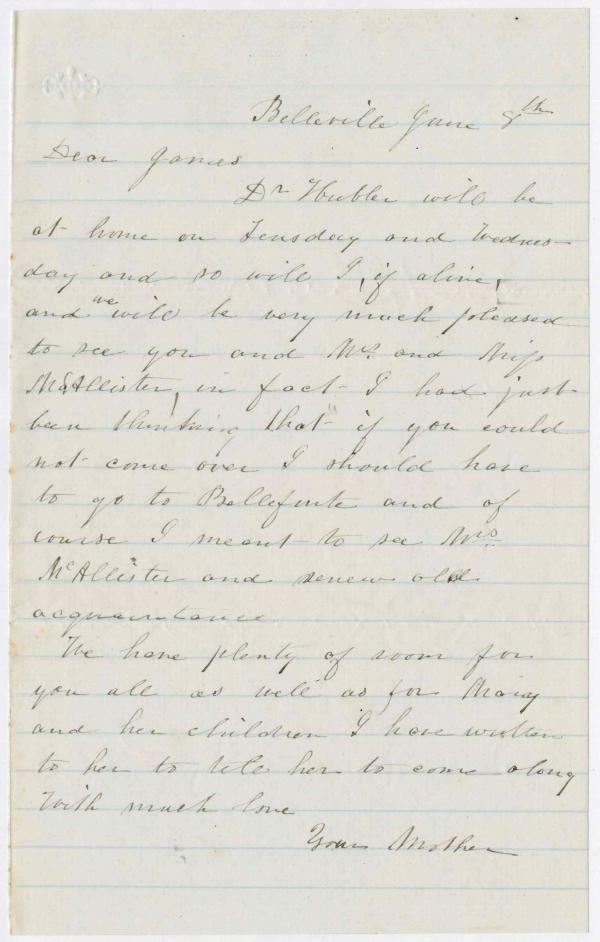 Belleville June 8th
Dear James
Dr Hubler will be
at home on Tensday and Wednes-
day and so will I, if alive,
and we will be very much pleased
to see you and Mrs. and Miss
McAllister, in fact I had just
been thinking that if you could
not come over I should have
to go to Bellefonte and of
course I meant to see Mrs.
McAllister and renew old
acquaintance.
We have plenty of room for
you all as well as for Mary
and her children I have written
to her to tell her to come along
With much love
Your Mother